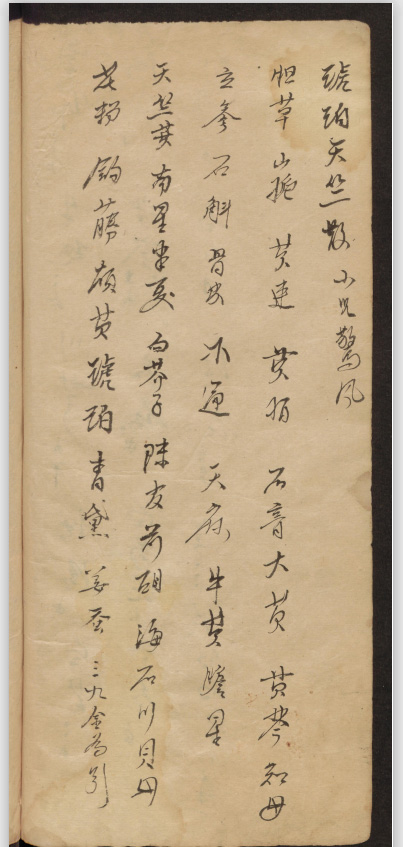 琥珀天竺散 小儿驚风
胆草 山梔 黄連 黄柏 石膏 大黄 黄芩 知母
玄参 石斛 骨皮 木通 天麻 牛黄 胆星
天竺黄 南星 半夏 白芥子 陈皮 前胡 海石 川貝母
花粉 鈎藤 黄 琥珀 青黛 姜蚕 三九金為引